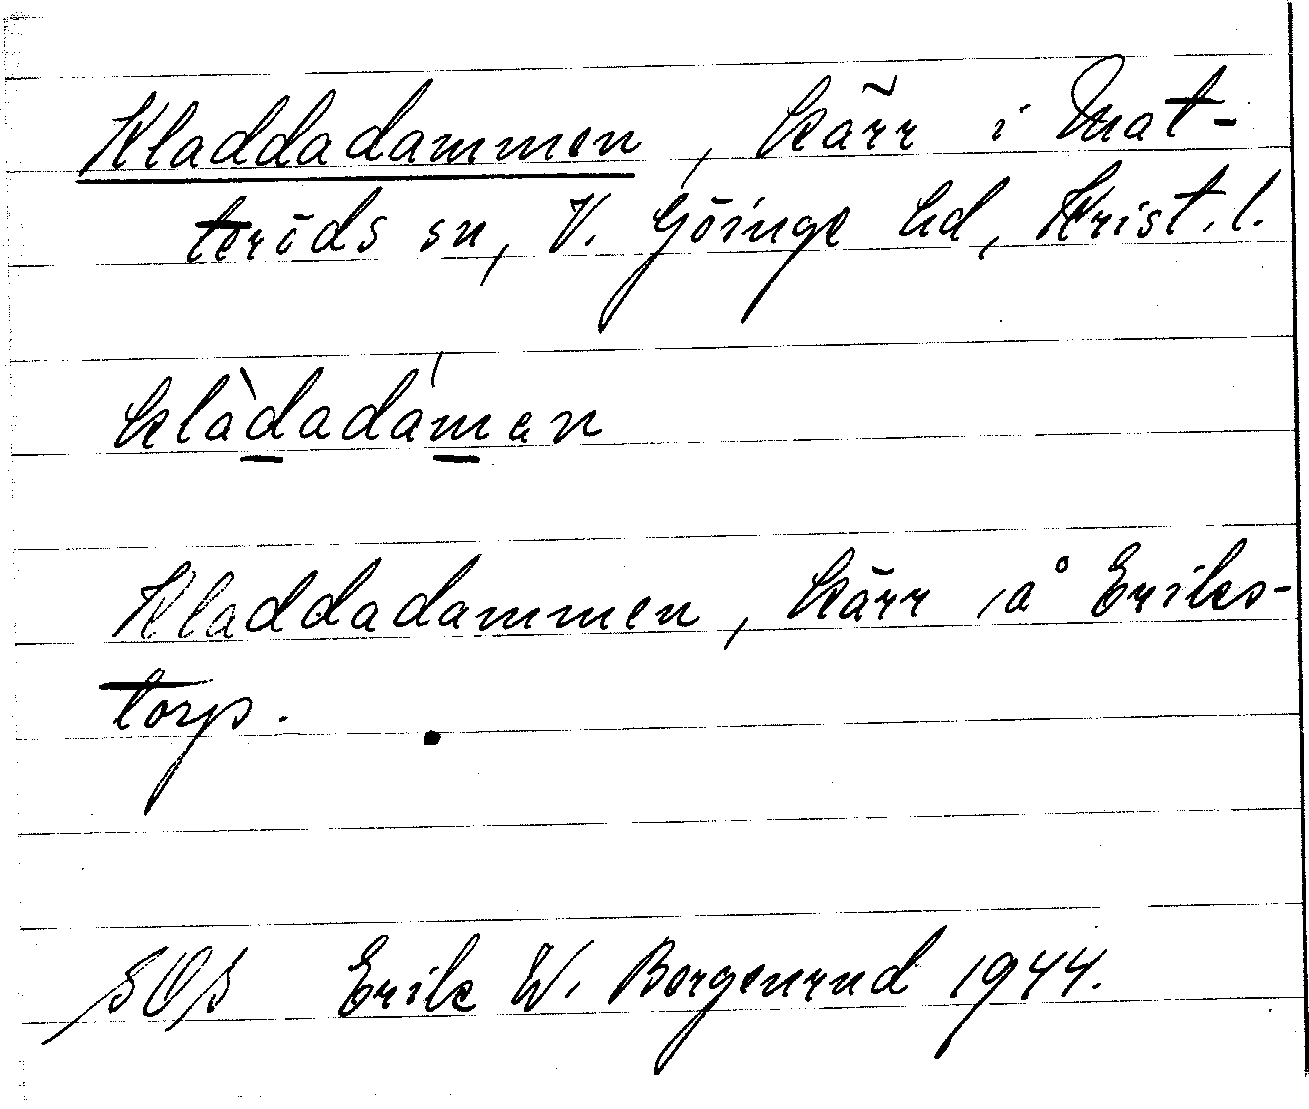 Kladdadammen, kärr i Mat-
teröds sn, V. Göinge hd, Krist. l.
klàdadáman
Kladdadammen, kärr, å Eriks-
torp.
SOS Erik W. Borgenrud 1944.